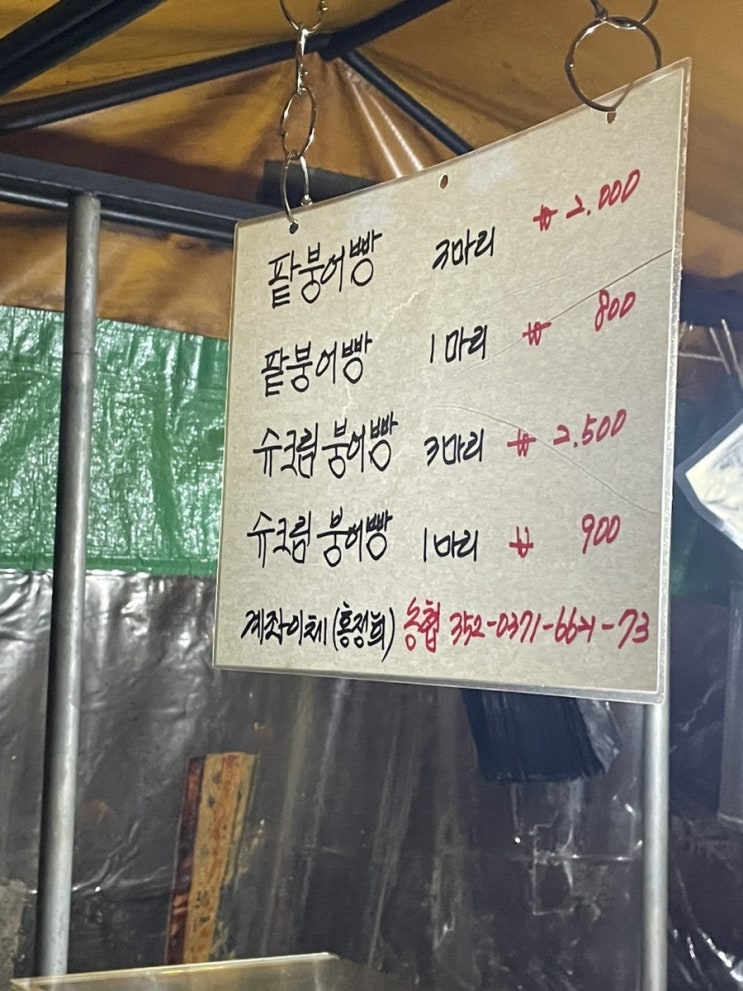 팥붕어빵 3마리 ₩ 2.000
팥붕어빵 1마리 ₩ 800
슈크림 붕어빵 3마리 ₩ 2.500
슈크림 붕어빵 1마리 ₩ 900
계좌이체(홍정희) 농협 352-0371-6621-73